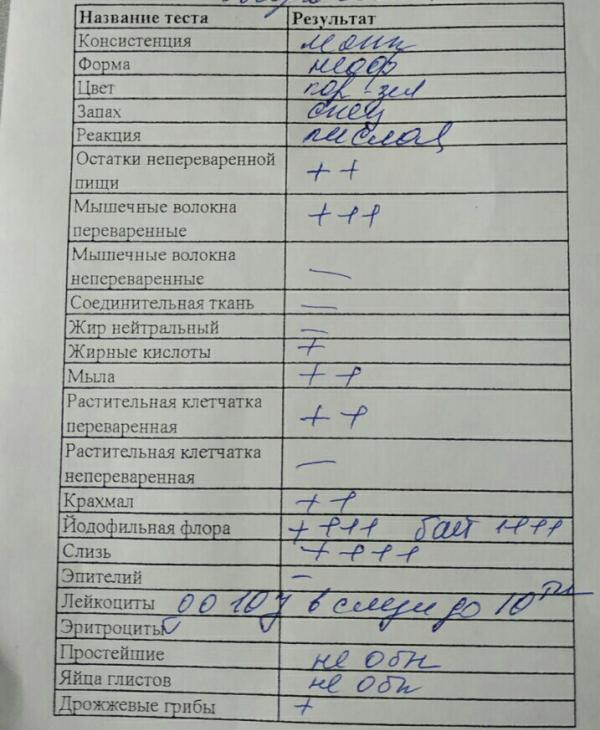 Название теста Результат
Консистенция
Форма неоф
Цвет кор-зел
Запах спец
Реакция кислая
Остатки непереваренной пищи ++
Мышечные волокна переваренные +++
Мышечные волокна непереваренные —
Соединительная ткань —
Жир нейтральный —
Жирные кислоты +
Мыла ++
Растительная клетчатка переваренная ++
Растительная клетчатка непереваренная —
Крахмал ++
Йодофильная флора ++++ бакт ++++
Слизь ++++
Эпителий –
Лейкоциты в слизи до 10
Эритроциты
Простейшие не обн
Яйца глистов не обн
Дрожжевые грибы +